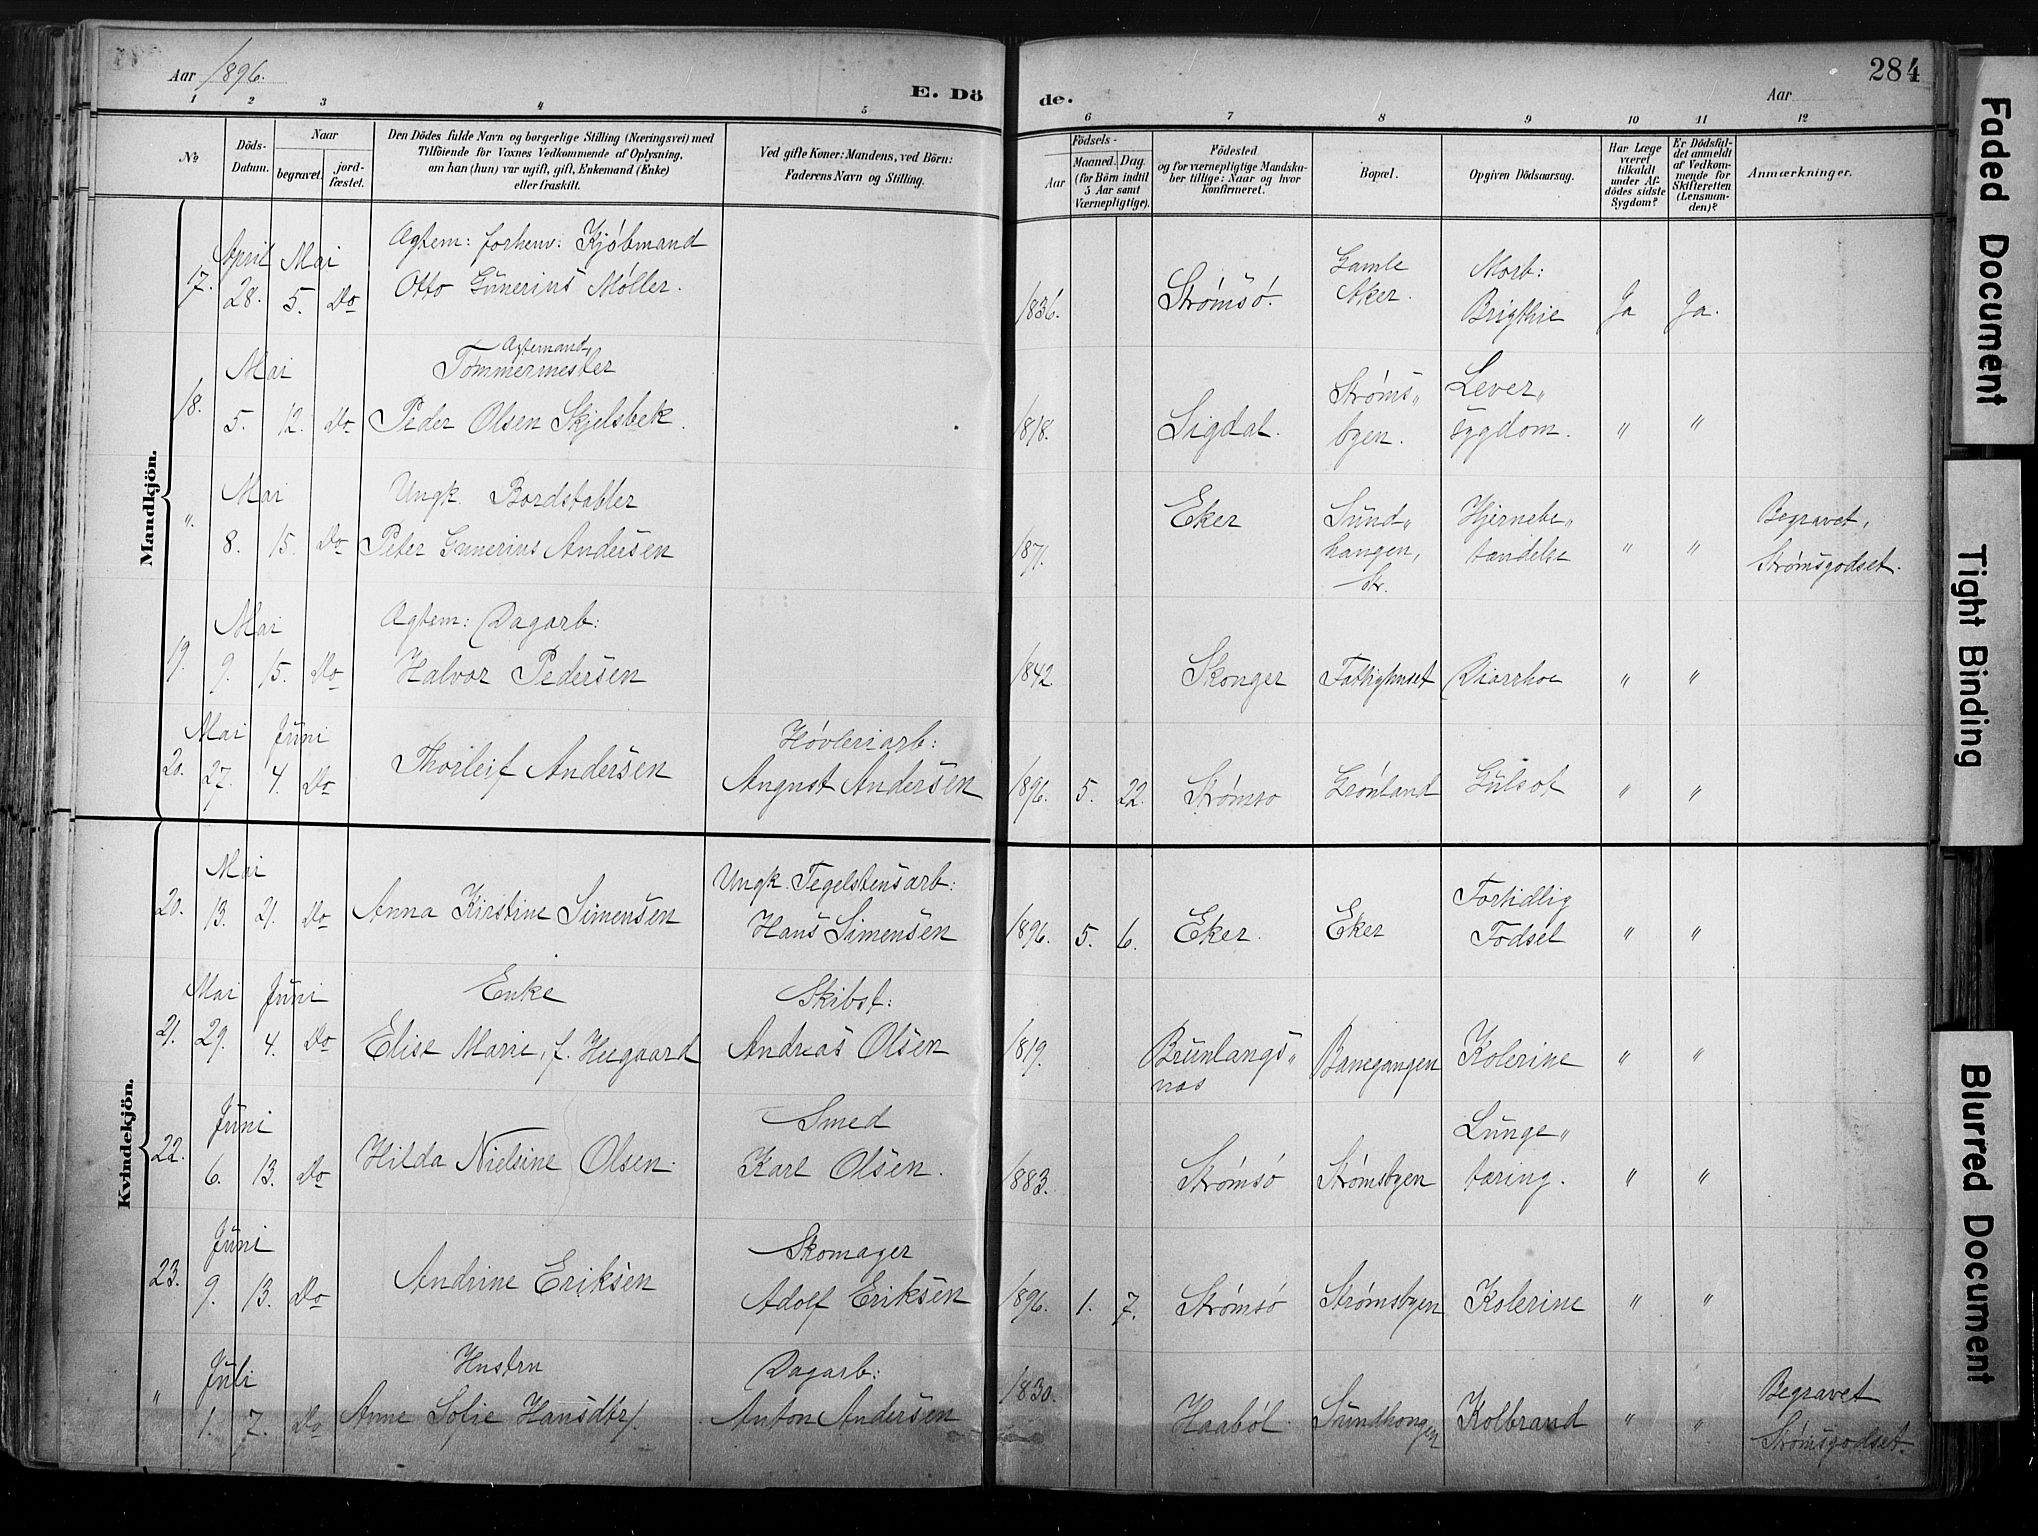 Aar 1896.
E. Dö
de.
Aar
284
1 2 3 4 5 6 7 8 9 10 11 12
No
Döds-
Datum.
Naar
begravet.
jord-
fæstet.
Den Dödes fulde Navn og borgerlige Stilling (Næringsvei) med
Tilföiende for Voxnes Vedkommende af Oplysning,
om han (hun) var ugift, gift, Enkemand (Enke)
eller fraskilt.
Ved gifte Koner: Mandens, ved Börn:
Faderens Navn og Stilling.
Födsels-
Aar
Maaned. Dag.
(for Börn indtil
5 Aar samt
Værnepligtige).
Födested
og for værnepligtige Mandska-
ber tillige: Naar og hvor
konfirmeret.
Bopæl.
Opgiven Dödsaarsag.
Har Læge
været
tilkaldt
under Af-
dödes sidste
Sygdom?
Er Dödsfal-
det anmeldt
af Vedkom-
mende for
Skifteretten
(Lensman-
den)?
Anmærkninger.
Mandkjön.
April Mai Agtem: forhenv: Kjøbmand Gamle Morb:
17. 28. 5. Do Otto Gunerius Møller. 1836. Strømsö. Aker. Brigthie Ja Ja.
Agtemand
Mai Tømmermester Strøms„ Lever„
18. 5. 12. Do Peder Olsen Skjelsbek. 1818. Sigdal. byen. sygdom. „ „
Mai Ungk. Bordstabler Eker Sund„ Hjernebe„ Begravet,
„. 8. 15. Do Peter Gunerius Andersen 1871. haugen, tændelse „ „ Strømsgodset.
Str.
Mai Agtem: Dagarb:
19. 9. 15. Do Halvor Pedersen 1842 Skonger Fattighuset Diarrhoe „ „
Mai Juni Høvleriarb:
20. 27. 4. Do Thorleif Andersen August Andersen 1896. 5. 22. Strømsø Grønland Gulsot „ „
Kvindekjön.
Mai Ungk. Tegelstensarb: Fortidlig
20. 13. 21. Do Anna Kirstine Simensen Hans Simensen 1896. 5. 6. Eker. Eker Fodsel „ „
Mai Juni Enke Skibst:
21. 29. 4. Do Elise Marie, f. Heegaard Andreas Olsen 1819. Brunlangs„ Banegangen Kolerine „ „
næs
Juni Smed Lunge„
22. 6. 13. Do Hilda Nielsine Olsen. Karl Olsen. 1883. Strømsö Strømsbyen tæring. „ „
Juni Skomager
23. 9. 13. Do Andrine Eriksen Adolf Eriksen 1896. 1. 7. Strømsö Strømsbyen Kolerine „ „
Juli Hustru Dagarb: Begravet
„ 1. 7. Do Anne Sofie Hansdtr. Anton Andersen 1830. Haaböl Sundhaugen Kolbrand „ „ Strømsgodset.
Faded Document
Tight Binding
Blurred Document